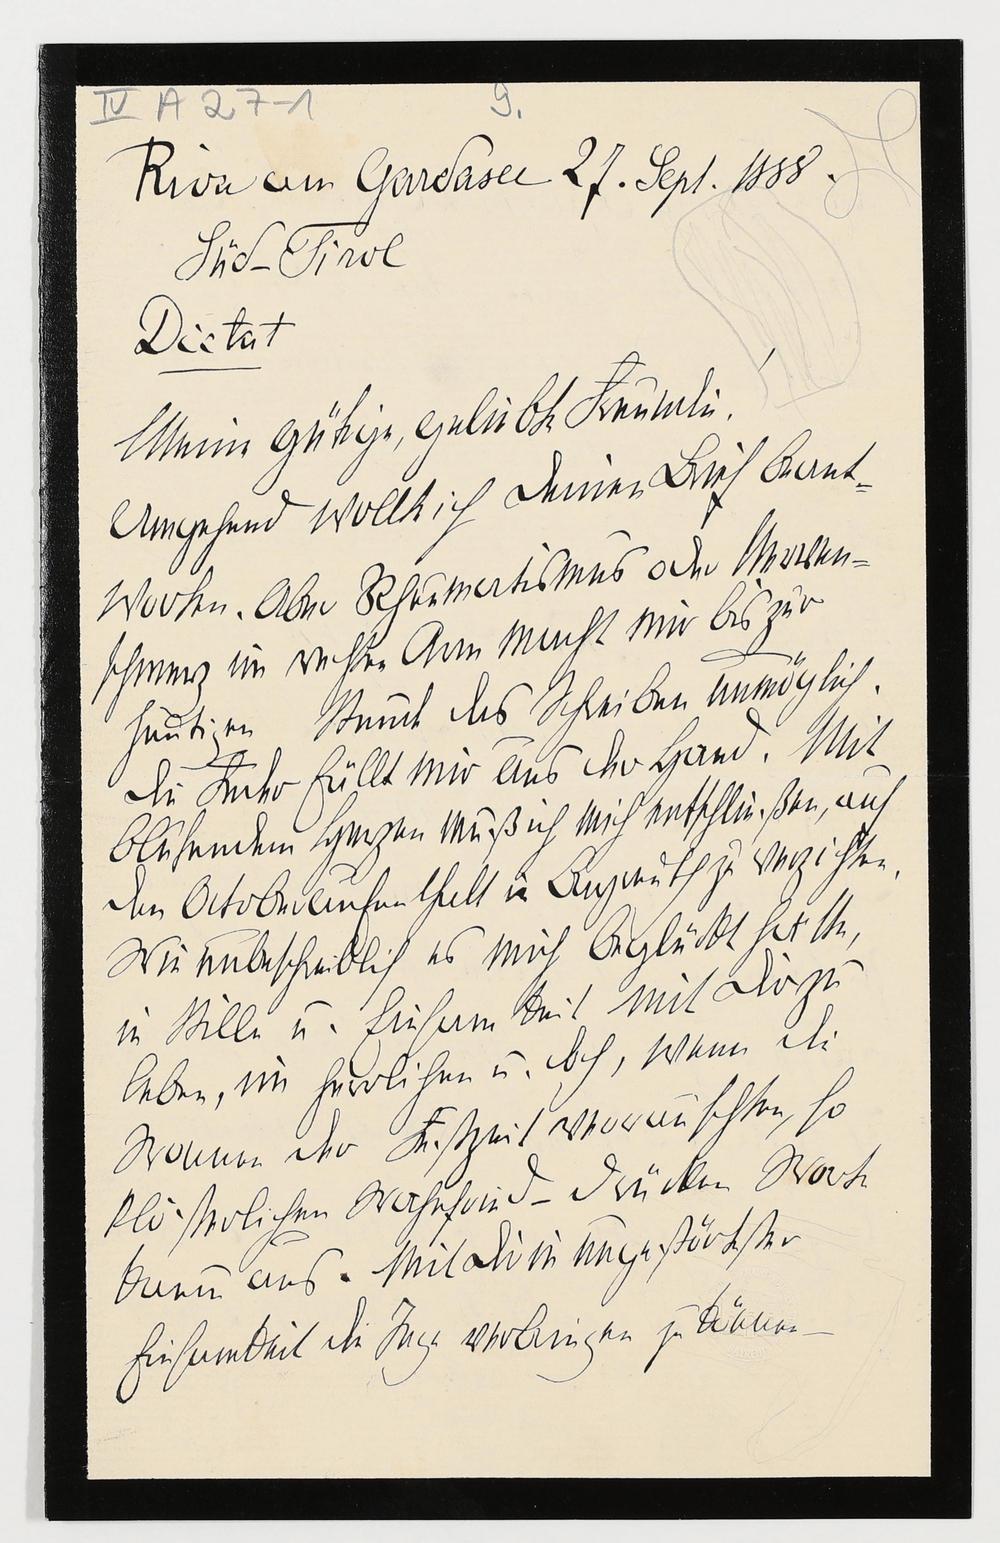 IV A 27-1 9.
Riva am Gardasee 27. Sept. 1888.
Süd-Tirol
Dictat
Meine gütige, geliebte Freundin!
Umgehend wollte ich Deinen Brief beant=
worten. Aber Rheumatismus oder Nerven=
schmerz im rechten Arm macht mir bis zur
heutigen Stunde das Schreiben unmöglich.
die Feder fällt mir aus der Hand. Mit
blutendem Herzen muß ich mich entschließen, auf
den Octoberaufenthalt in Bayreuth zu verzichten.
Wie unbeschreiblich es mich beglückt hätte,
in Stille u. Einsamkeit mit Dir zu
leben, im herrlichen u. doch, wenn die
Wonnen der Festzeit verrauschten, so
klösterlichen Wahnfried – drücken Worte
kaum aus. Mit Dir in ungestörtester
Einsamkeit die Tage verbringen zu können –